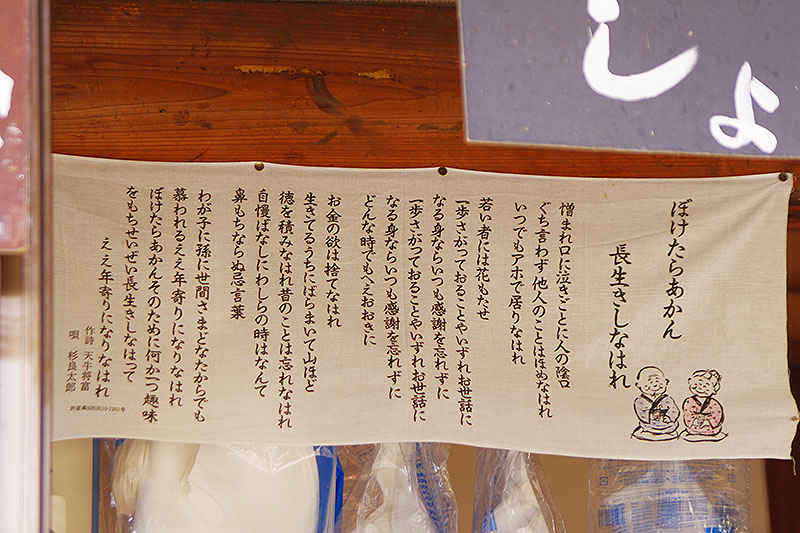 しょ
ぼけたらあかん
長生きしなはれ
憎まれ口に泣きごとに人の陰口
ぐち言わず他人のことはほめなはれ
いつでもアホで居りなはれ
若い者には花もたせ
一歩さがっておることやいずれお世話に
なる身ならいつも感謝を忘れずに
一歩さがっておることやいずれお世話に
なる身ならいつも感謝を忘れずに
どんな時でもへえおおきに
お金の欲は捨てなはれ
生きてるうちにばらまいて山ほど
徳を積みなはれ昔のことは忘れなはれ
自慢ばなしにわしらの時はなんて
鼻もちならぬ忌言葉
わが子に孫に世間さまどなたからでも
慕われるええ年寄りになりなはれ
ぼけたらあかんそのために何か一つ趣味
をもちせいぜい長生きしなはって
ええ年寄りになりなはれ
作詩 天牛将富
唄 杉良太郎